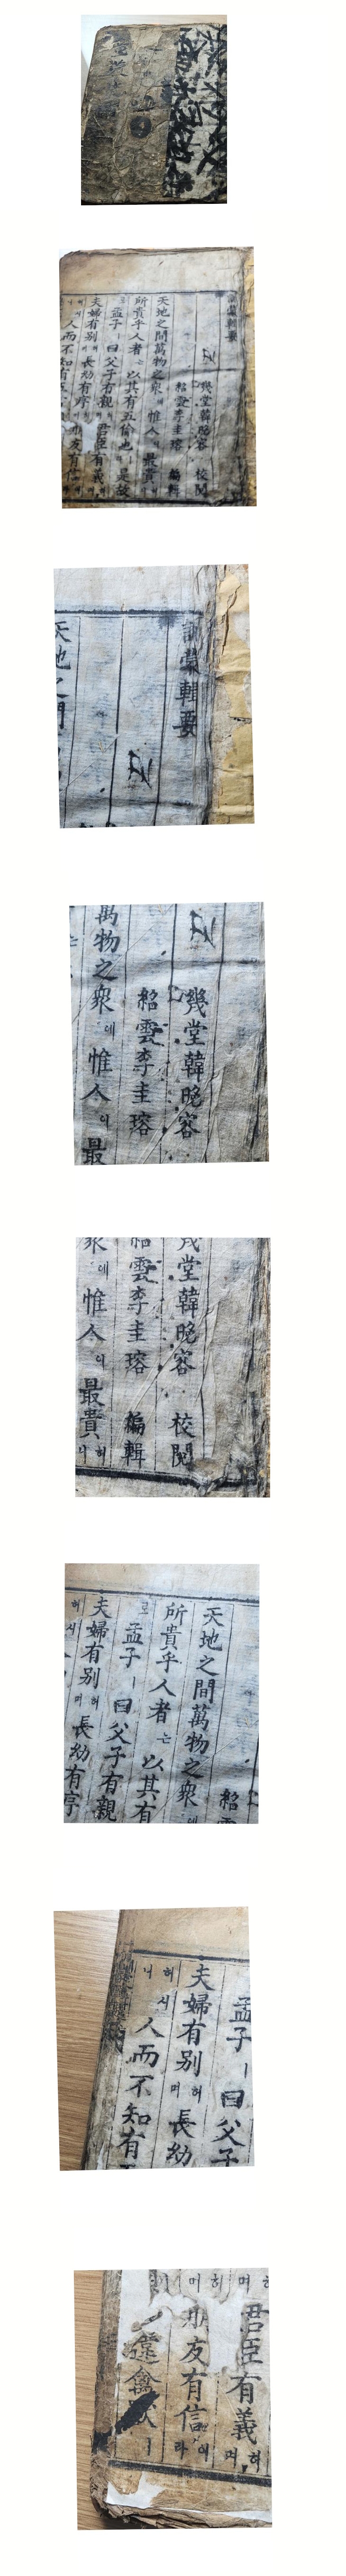 訓蒙輯要
幾堂韓晩容 校閱
紹雲李圭瑢 編輯
天地之間萬物之衆에 惟人이 最貴허니
所貴乎人者는 以其有五倫也 是故
로 孟子ㅣ曰父子有親 君臣有義허며
夫婦有別허며 長幼有序 朋友有信
허시니 人而不知有
訓蒙輯要
天地之間
萬物之衆에 惟人이 最
幾堂韓晩容
紹雲李圭瑢
堂韓晩容 校閱
雲李圭瑢 編輯
에 惟人이 最貴허니
天地之間萬物之衆
所貴乎人者는 以其有
로 孟子ㅣ曰父子有親
夫婦有別허며 長幼有序
허시
孟子ㅣ曰父子
夫婦有別허며 長幼
허시니 人而不知有
君臣有義허며
朋友有信이라
違禽獸ㅣ